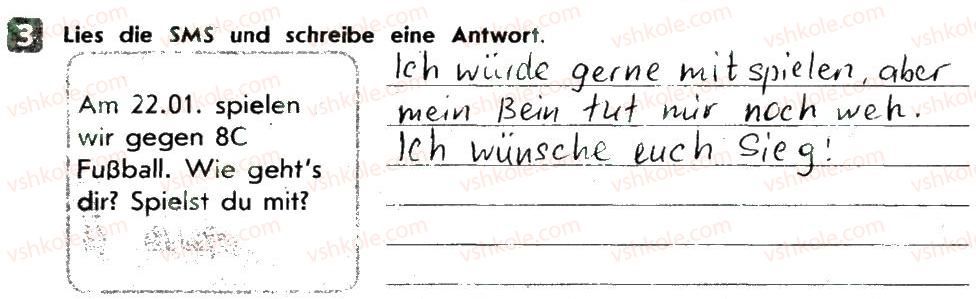 3 Lies die SMS und schreibe eine Antwort.
Am 22.01. spielen
wir gegen 8C
Fußball. Wie geht's
dir? Spielst du mit?
Ich würde gerne mitspielen, aber
mein Bein tut mir noch weh.
Ich wünsche euch Sieg!
vshkole.com